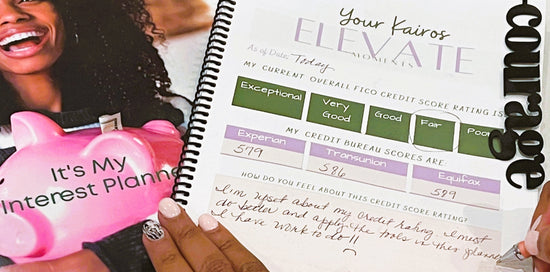 Your Kairos
ELEVATE
MOMENTS
As of Date: Today
MY CURRENT OVERALL FICO CREDIT SCORE RATING IS
Exceptional Very Good Good Fair Poor
MY CREDIT BUREAU SCORES ARE:
Experian Transunion Equifax
579
HOW DO YOU FEEL ABOUT THIS CREDIT SCORE RATING?
I'm upset about my credit rating. I must
do better and apply the tools in this planner
I have work to do!!
-courage
It's My
Interest Planne